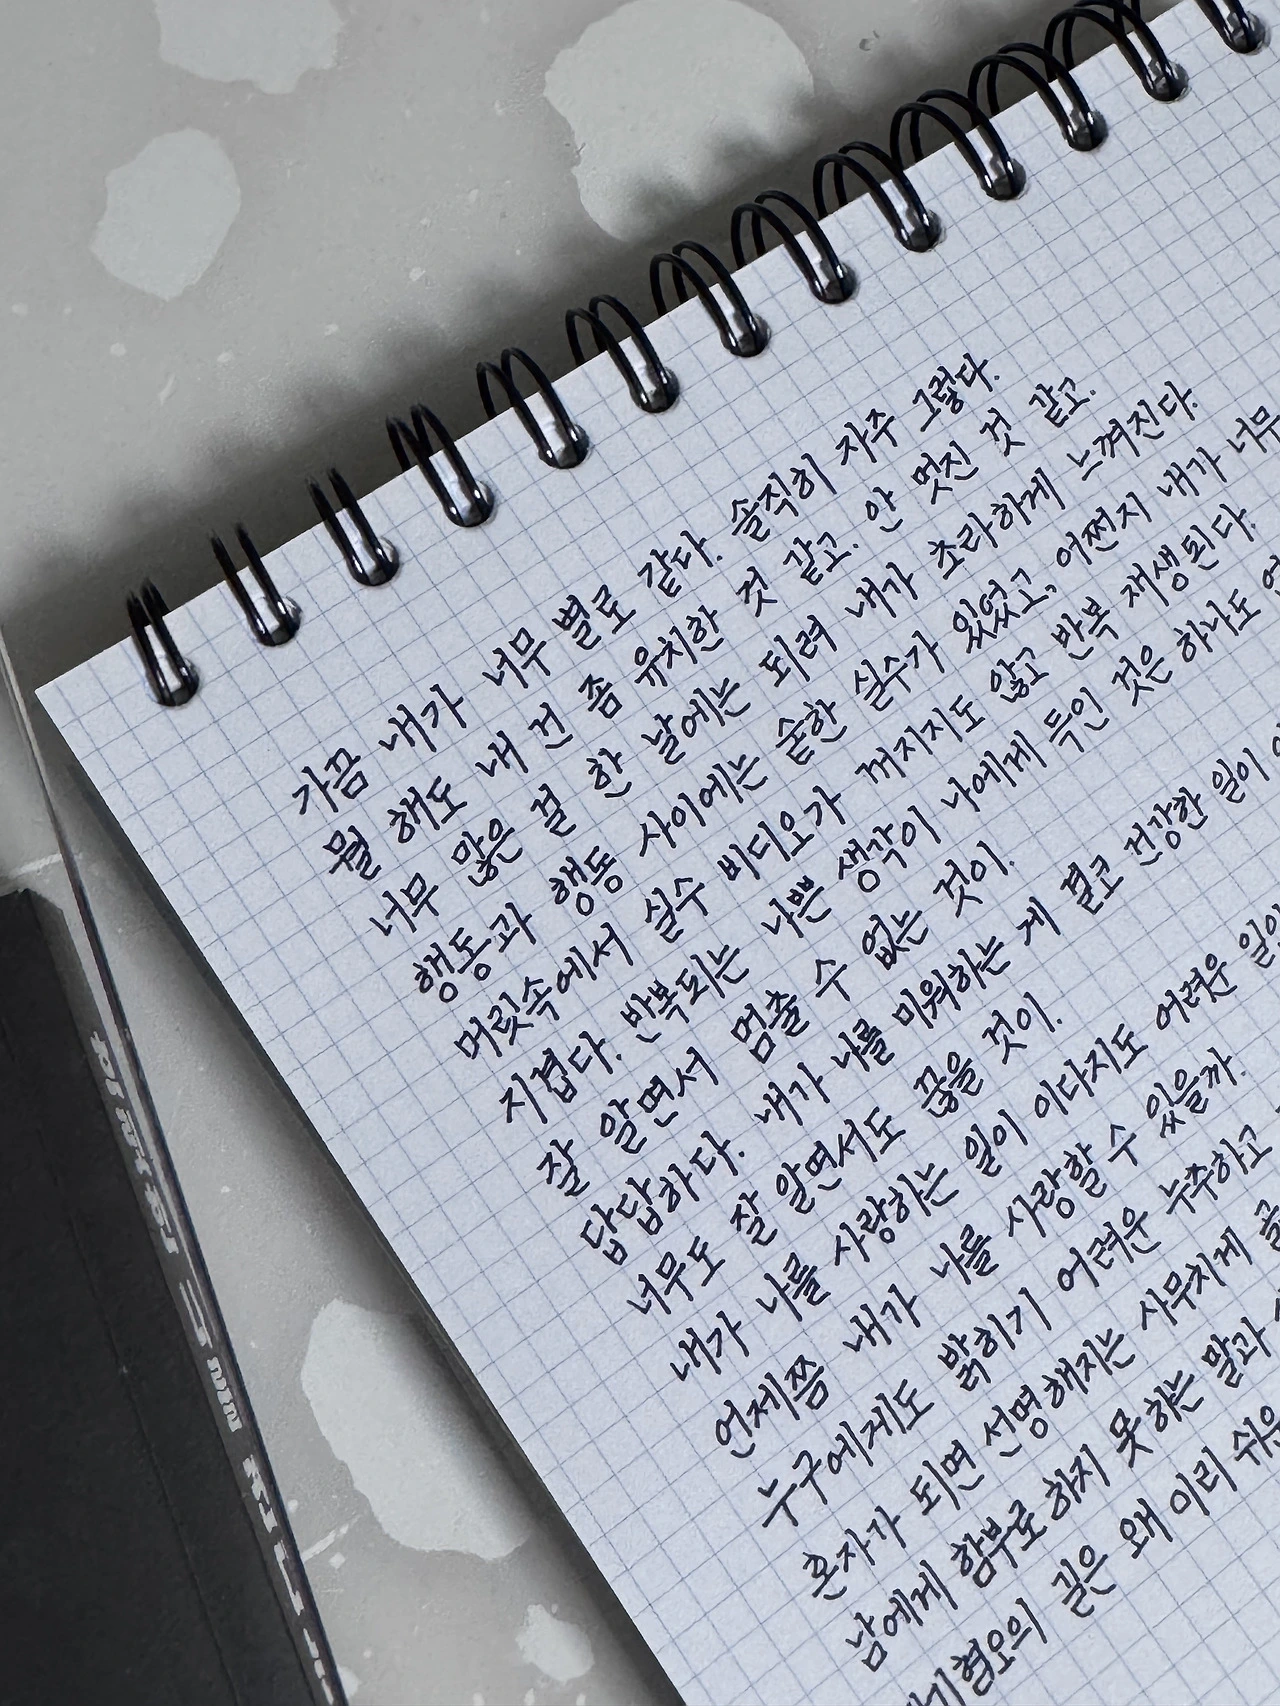 가끔 내가 너무 별로 같다. 솔직히 자주 그렇다.
뭘 해도 내 건 좀 유치한 것 같고. 안 멋진 것 같고.
너무 많은 걸 한 날에는 되려 내가 초라하게 느껴진다.
행동과 행동 사이에는 숱한 실수가 있었고, 어쩐지 내가 너무
머릿속에서 실수 비디오가 꺼지지도 않고 반복 재생된다.
지겹다. 반복되는 나쁜 생각이 나에게 득인 것은 하나도
잘 알면서 멈출 수 없는 것이.
답답하다. 내가 나를 미워하는 게 결코 건강한 일이
너무도 잘 알면서도 끊을 것이.
내가 나를 사랑하는 일이 이다지도 어려운
언제쯤 내가 나를 사랑할 수 있을까.
누구에게도 밝히기 어려운 누추하고
혼자가 되면 선명해지는 사무치게
남에게 함부로 하지 못하는 말과
혐오의 길은 왜 이리 쉬운